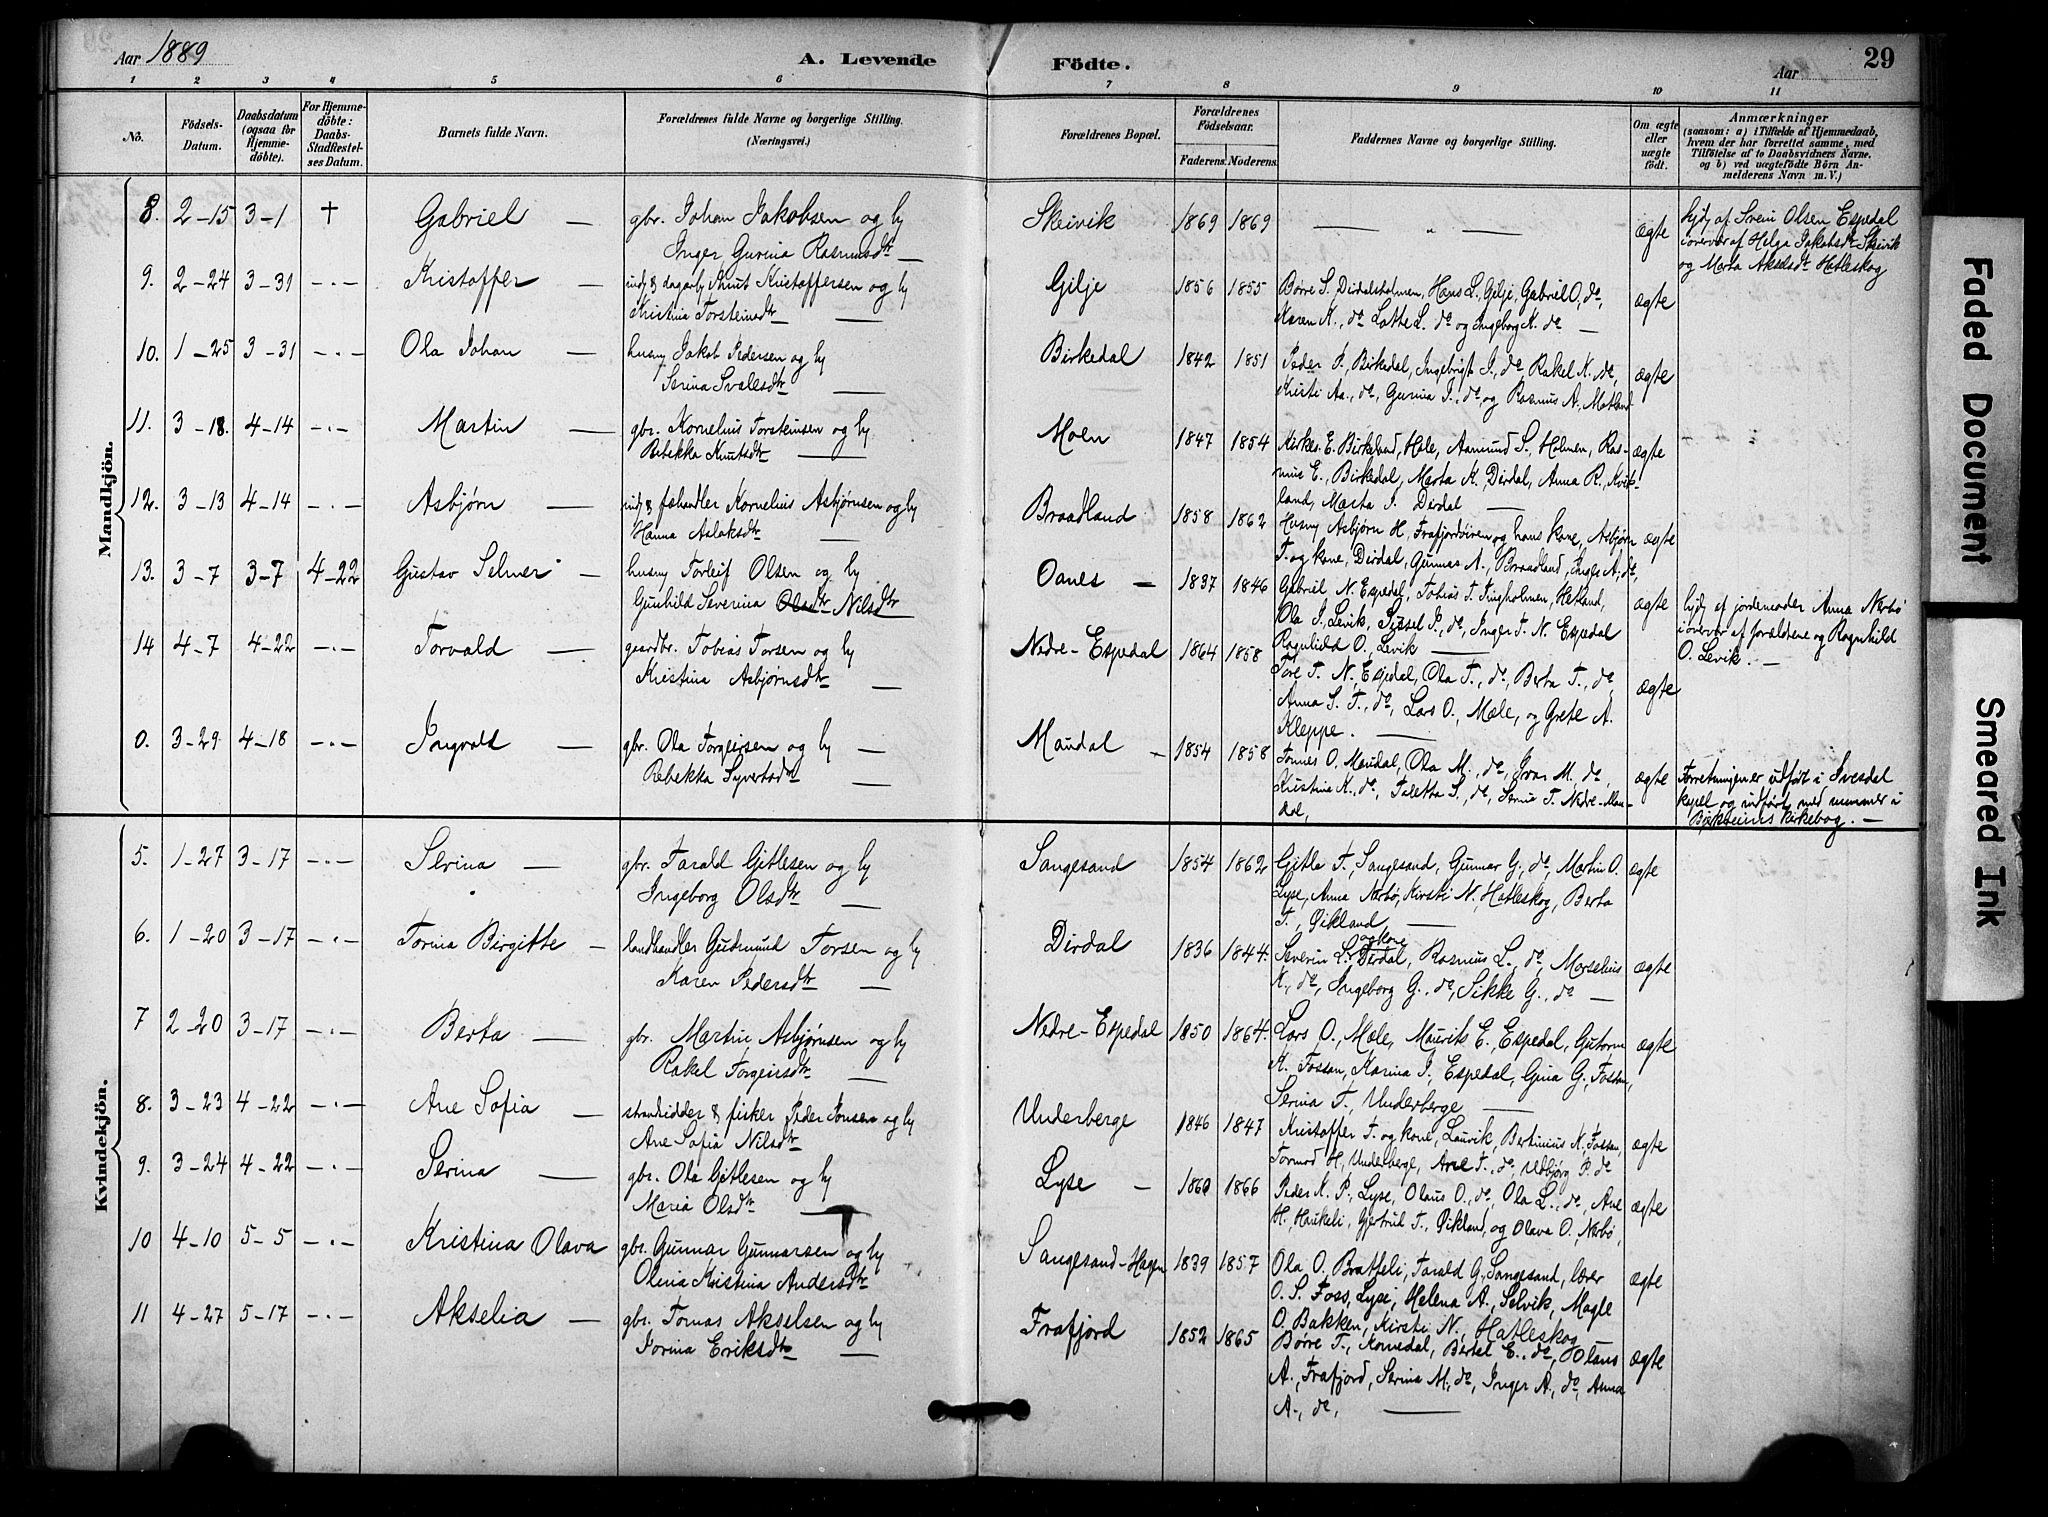 Aar 1889
A. Levende Födte.
29
Aar
1 2 3 4 5 6 7 8 9 10 11
No.
Födsels-Datum.
Daabsdatum (ogsaa for Hjemmedöbte).
For Hjemmedöbte: Daabs-Stadfæstelses Datum.
Barnets fulde Navn.
Forældrenes fulde Navne og borgerlige Stilling.
(Næringsvei.)
Forældrenes Bopæl.
Forældrenes Födselsaar.
Faderens. Moderens.
Faddernes Navne og borgerlige Stilling.
Om ægte eller uægte födt.
Anmærkninger
(saasom: a) i Tilfælde af Hjemmedaab,
hvem der har forrettet samme, med
Tilföielse af to Daabsvidners Navne.
og b) ved uægtefödte Börn An-
melderens Navn m. V.)
Mandkjön.
8. 2-15 3-1 † Gabriel — gbr. Johan Jakobsen og hu
Inger Gurina Rasmusdtr —
Skeivik 1869 1869 — „ — ægte
hjdp af Svein Olsen Espedal
i overvær af Helga Jakobsdtr Skeivik
og Marta Akselsdtr Hatleskog
9. 2-24 3-31 -„- Kristoffer — indj & dagarb Knut Kristoffersen og hu
Kristina Torsteinsdtr —
Gilje 1856 1855 Børe S. Dirdalsholmen, Hans L. Gilje, Gabriel O, do,
Karen K., do Lotte L. do og Ingeborg K. do —
ægte
10. 1-25 3-31 -„- Ola Johan — husm Jakob Pedersen og hu
Serina Svalesdtr —
Birkedal 1842 1851 Peder J., Birkedal, Ingebrigt J., do, Rakel K. do,
Kristi Aa., do, Gurina J., do, og Rasmus A. Matland
ægte
11. 3-18. 4-14 -„- Martin — gbr. Kornelius Torsteinsen og hu
Rebekka Knutsdtr —
Moen 1847 1854 Kirkes. E. Birkeland, Hole, Aamund S., Holmen, Ras-
mus E., Birkedal, Marta K. Dirdal, Anna R., Kvit-
land, Marta J. Dirdal —
ægte
12. 3-13 4-14 -„- Asbjørn — indj & fæhandler Kornelius Asbjørnsen og hu
Hanna Aslaksdtr —
Braadland 1858 1862 Husm Asbjørn H, Frafjordøiren og hans kone, Asbjørn
T. og kone, Dirdal, Gunnar A., Braadland, Inger A., do,
ægte
13. 3-7 3-7 4-22 Gustav Selmer — husm Torleif Olsen og hu
Gunhild Severina Olsdtr Nilsdtr
Oanes — 1837 1846 Gabriel N. Espedal, Tobias T. Tingholmen, Hetland,
Ola J. Levik, Sissel P., do, Inger T. N. Espedal
Ragnhild O., Levik —
ægte
hjdp af jordemoder Anna Nerbø
i overvær af forældrene og Ragnhild
O. Levik. —
14 4-7 4-22 -„- Torvald — gaardbr. Tobias Torsen og hu
Kristina Asbjørnsdtr —
Nedre-Espedal 1864 1858 Tore T. N. Espedal, Ola T., do, Berta T., do,
Anna S. T., do, Lars O., Mæle, og Grete A.
Kleppe. —
ægte
0. 3-29 4-18 -„- Ingvald — gbr. Ola Torgeirsen og hu —
Rebekka Syvertsdtr —
Maudal — 1854 1858 Tønnes O. Maudal, Ola M., do, Ivar M. do,
Kristine K., do, Taletta S., do, Serina T. Nedre-Mau-
dal,
ægte
Forretningen er udført i Ivesdal
kapel og indført med nummer i
Bjerkreims kirkebog. —
Kvindekjön.
5. 1-27 3-17 -„- Serina — gbr. Tarald Gitlesen og hu
Ingeborg Olsdtr —
Sangesand 1854 1862 Gitla T., Sangesand, Gunnar G., do, Martin O.
Lyse, Anna Nerbø, Kirsti N., Hatleskog, Berta
T., Øikland —
ægte
6. 1-20 3-17 -„- Torina Birgitte — landhandler Gudmund Torsen og hu
Karen Pedersdtr —
Dirdal 1836 1844. Severin L. og kone Dirdal, Rasmus L., do, Marselius
K., do, Ingeborg G., do, Sikke G., do —
ægte
7 2-20 3-17 -„- Berta — gbr. Martin Asbjørnsen og hu
Rakel Torgeirsdtr —
Nedre-Espedal 1850 1864. Lars O., Mæle, Maurits E., Espedal, Gutorm
K. Fossan, Karina J., Espedal, Gina G., Fossan,
Serina T., Underberge —
ægte
8. 3-23 4-22 -„- Ane Sofia — strandsidder & fisker Peder Jonsen og hu
Ane Sofia Nilsdtr
Underberge 1846 1847 Kristoffer T. og kone, Lauvik, Bertinius K., Fossan,
Tormod H., Underberge, Arne T., do, Udbjørg P. do
ægte
9. 3-24 4-22 -„- Serina — gbr. Ola Gitlesen og hu
Maria Olsdtr —
Lyse — 1860 1866 Peder K. P., Lyse, Olaus O., do, Ola L., do, Ane
H., Haukeli, Gjertrud T., Øikland, og Olava O., Nerbø,
ægte
10 4-10 5-5 -„- Kristina Olava gbr. Gunnar Gunnarsen og hu
Olina Kristina Andersdtr
Sangesand-Hagen 1839 1857 Ola O. Bratteli, Tarald G., Sangesand, lærer
O. S. Foss, Lyse, Helena A., Selvik, Magle
O. Bakken, Kirsti N., Hatleskog —
ægte
11 4-27 5-17 -„- Akselia — gbr. Tomas Akselsen og hu
Jorina Eriksdtr —
Frafjord 1852 1865 Børre T., Komedal, Bertel E., do, Olaus
A., Frafjord, Serina M., do, Inger A., do, Anna
A., do, —
ægte
Faded Document
Smeared Ink